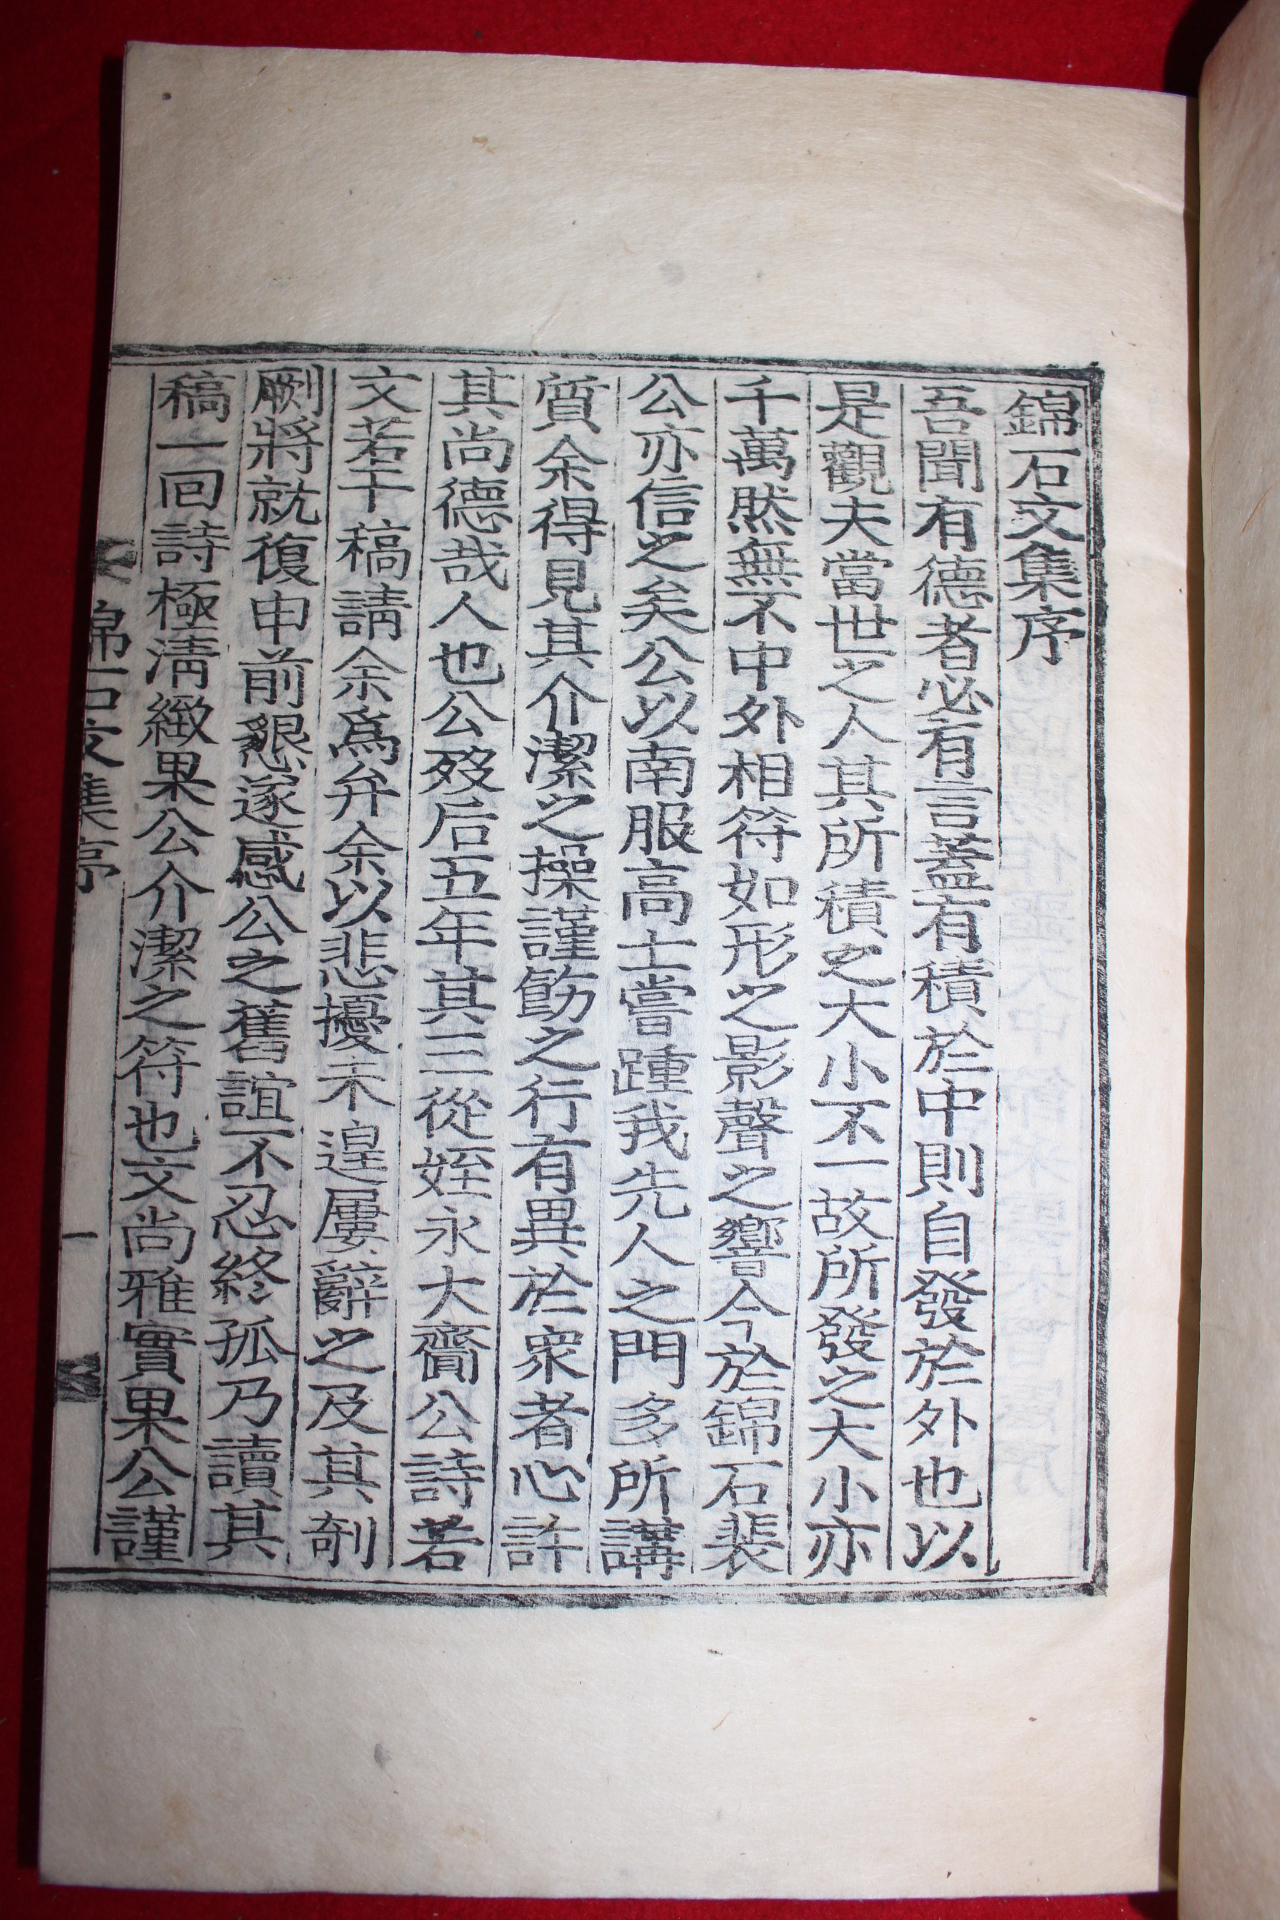 錦石文集序
吾聞有德者必有言蓋有積於中則自發於外也以
是觀夫當世之人其所積之大小不一故所發之大小亦
千萬然無不中外相符如形之影聲之響今於錦石裴
公亦信之矣公以南服高士嘗踵我先人之門多所講
質余得見其介潔之操謹飭之行有異於衆者心許
其尚德哉人也公歿后五年其三從姪永大齎公詩若
文若干稿請余爲弁余以悲擾未遑屢辭之及其剞
劂將就復申前懇遂感公之舊誼不忍終孤乃讀其
稿一回詩極淸緻果公介潔之符也文尚雅實果公謹
錦石文集序
一